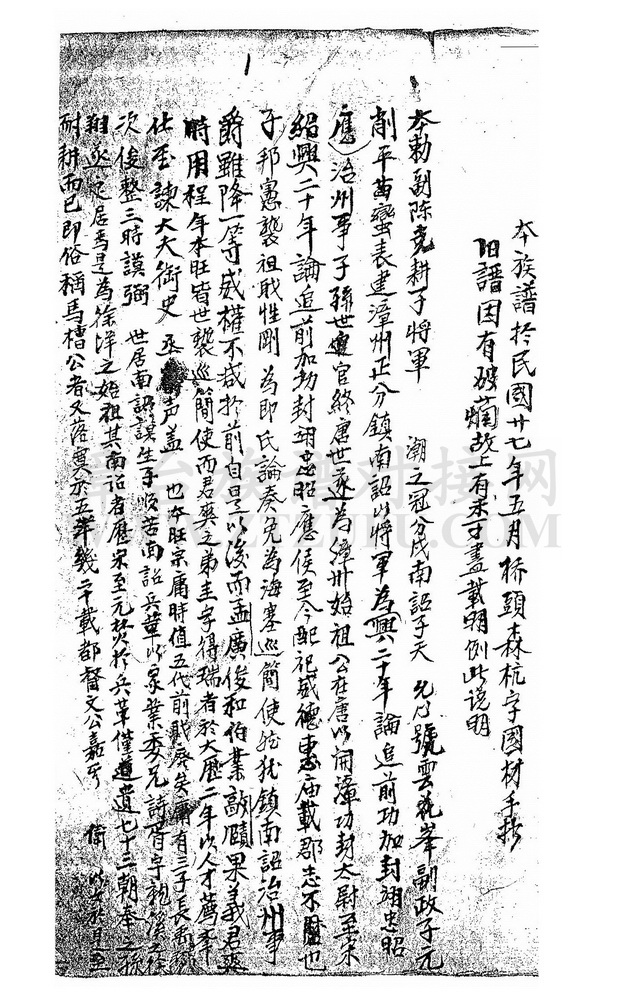 本族譜於民國廿七年五月桥頭森杭字國材手抄
旧譜因有破爛故上有未可盡載明例此说明
本勅副陈克耕子將軍 潮之冠分戍南詔子天 允乃號雲花峯副政子元
削平苗蠻表建漳州正分鎮南詔以將軍為興二十年論追前功加封翊忠昭
應 治州事子孫世連官終唐世遂為漳州始祖公在唐以開漳功封太尉至宋
紹興二十年論追前加功封翊忠昭應侯至今配祀威德惠庙載郡志不 也
子邦憲襲祖戝性剛為即氏論奏免為海塞巡簡使 犹鎮南詔治州事
爵雖降一等威權不减於前自是以後而孟廣俊和伯業敵 果義君奭
時用程年本旺皆世襲巡簡使而君奭之弟圭字得瑞者於大歷二年以人才薦奉
仕至諫大夫衛史 丞 声盖 也本旺宗庸時值五代前戝廢矣庸有三子長
次俊整三時謨弼 世居南詔謨生子順苦南詔兵革以家業委兄詩 字 溪之
翔 定居焉是為徐洋之始祖其南詔者歷宋至元 於兵革僅遺七十三朝奉之孫
耐耕而巳即俗稱馬槽公者又落 五 幾二千載都督文公嘉
1
章台族谱对接网
WWW.ZTZUPU.COM